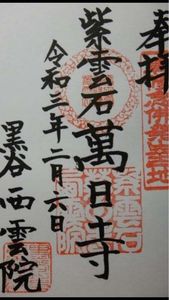 奉拝
紫雲石萬日寺
令和三年二月六日
黒谷西雲院